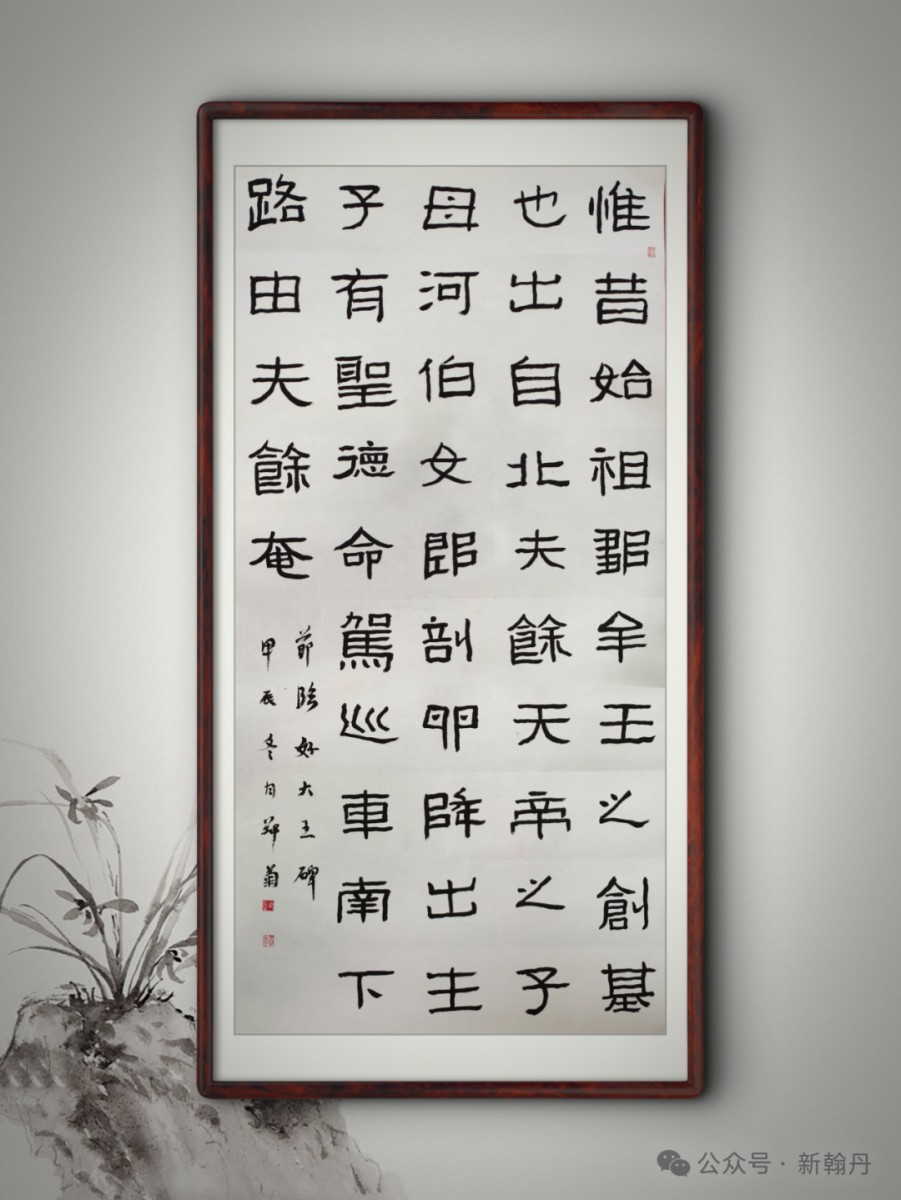 惟昔始祖鄒牟王之創基
也出自北夫餘天帝之子
母河伯女郎剖卵降出生
子有聖德命駕巡車南下
路由夫餘奄
節臨好大王碑
甲辰冬月鄭菊
公众号·新翰丹